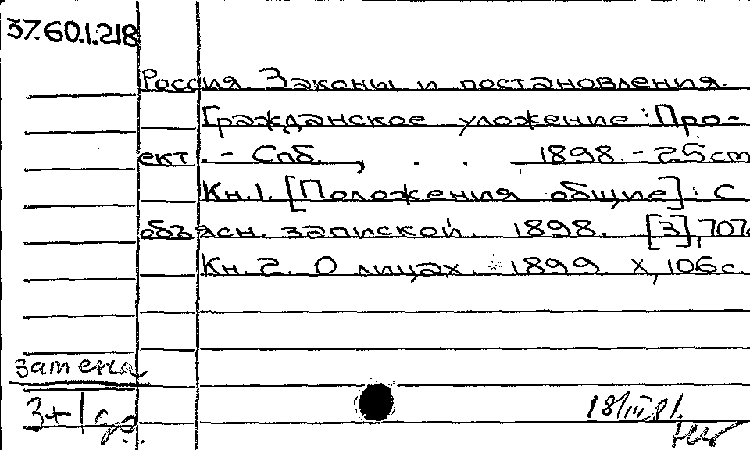 37.60.1.218
Россия. Законы и постановления.
Гражданское уложение : Про-
ект. - Спб., . . 1898. - 25 cm
Кн. 1. [Положения общие] : С
объясн. запиской. 1898. [3], 707с
Кн. 2. О лицах. 1899. X, 106 с.
замена
3+1
18/III 81.